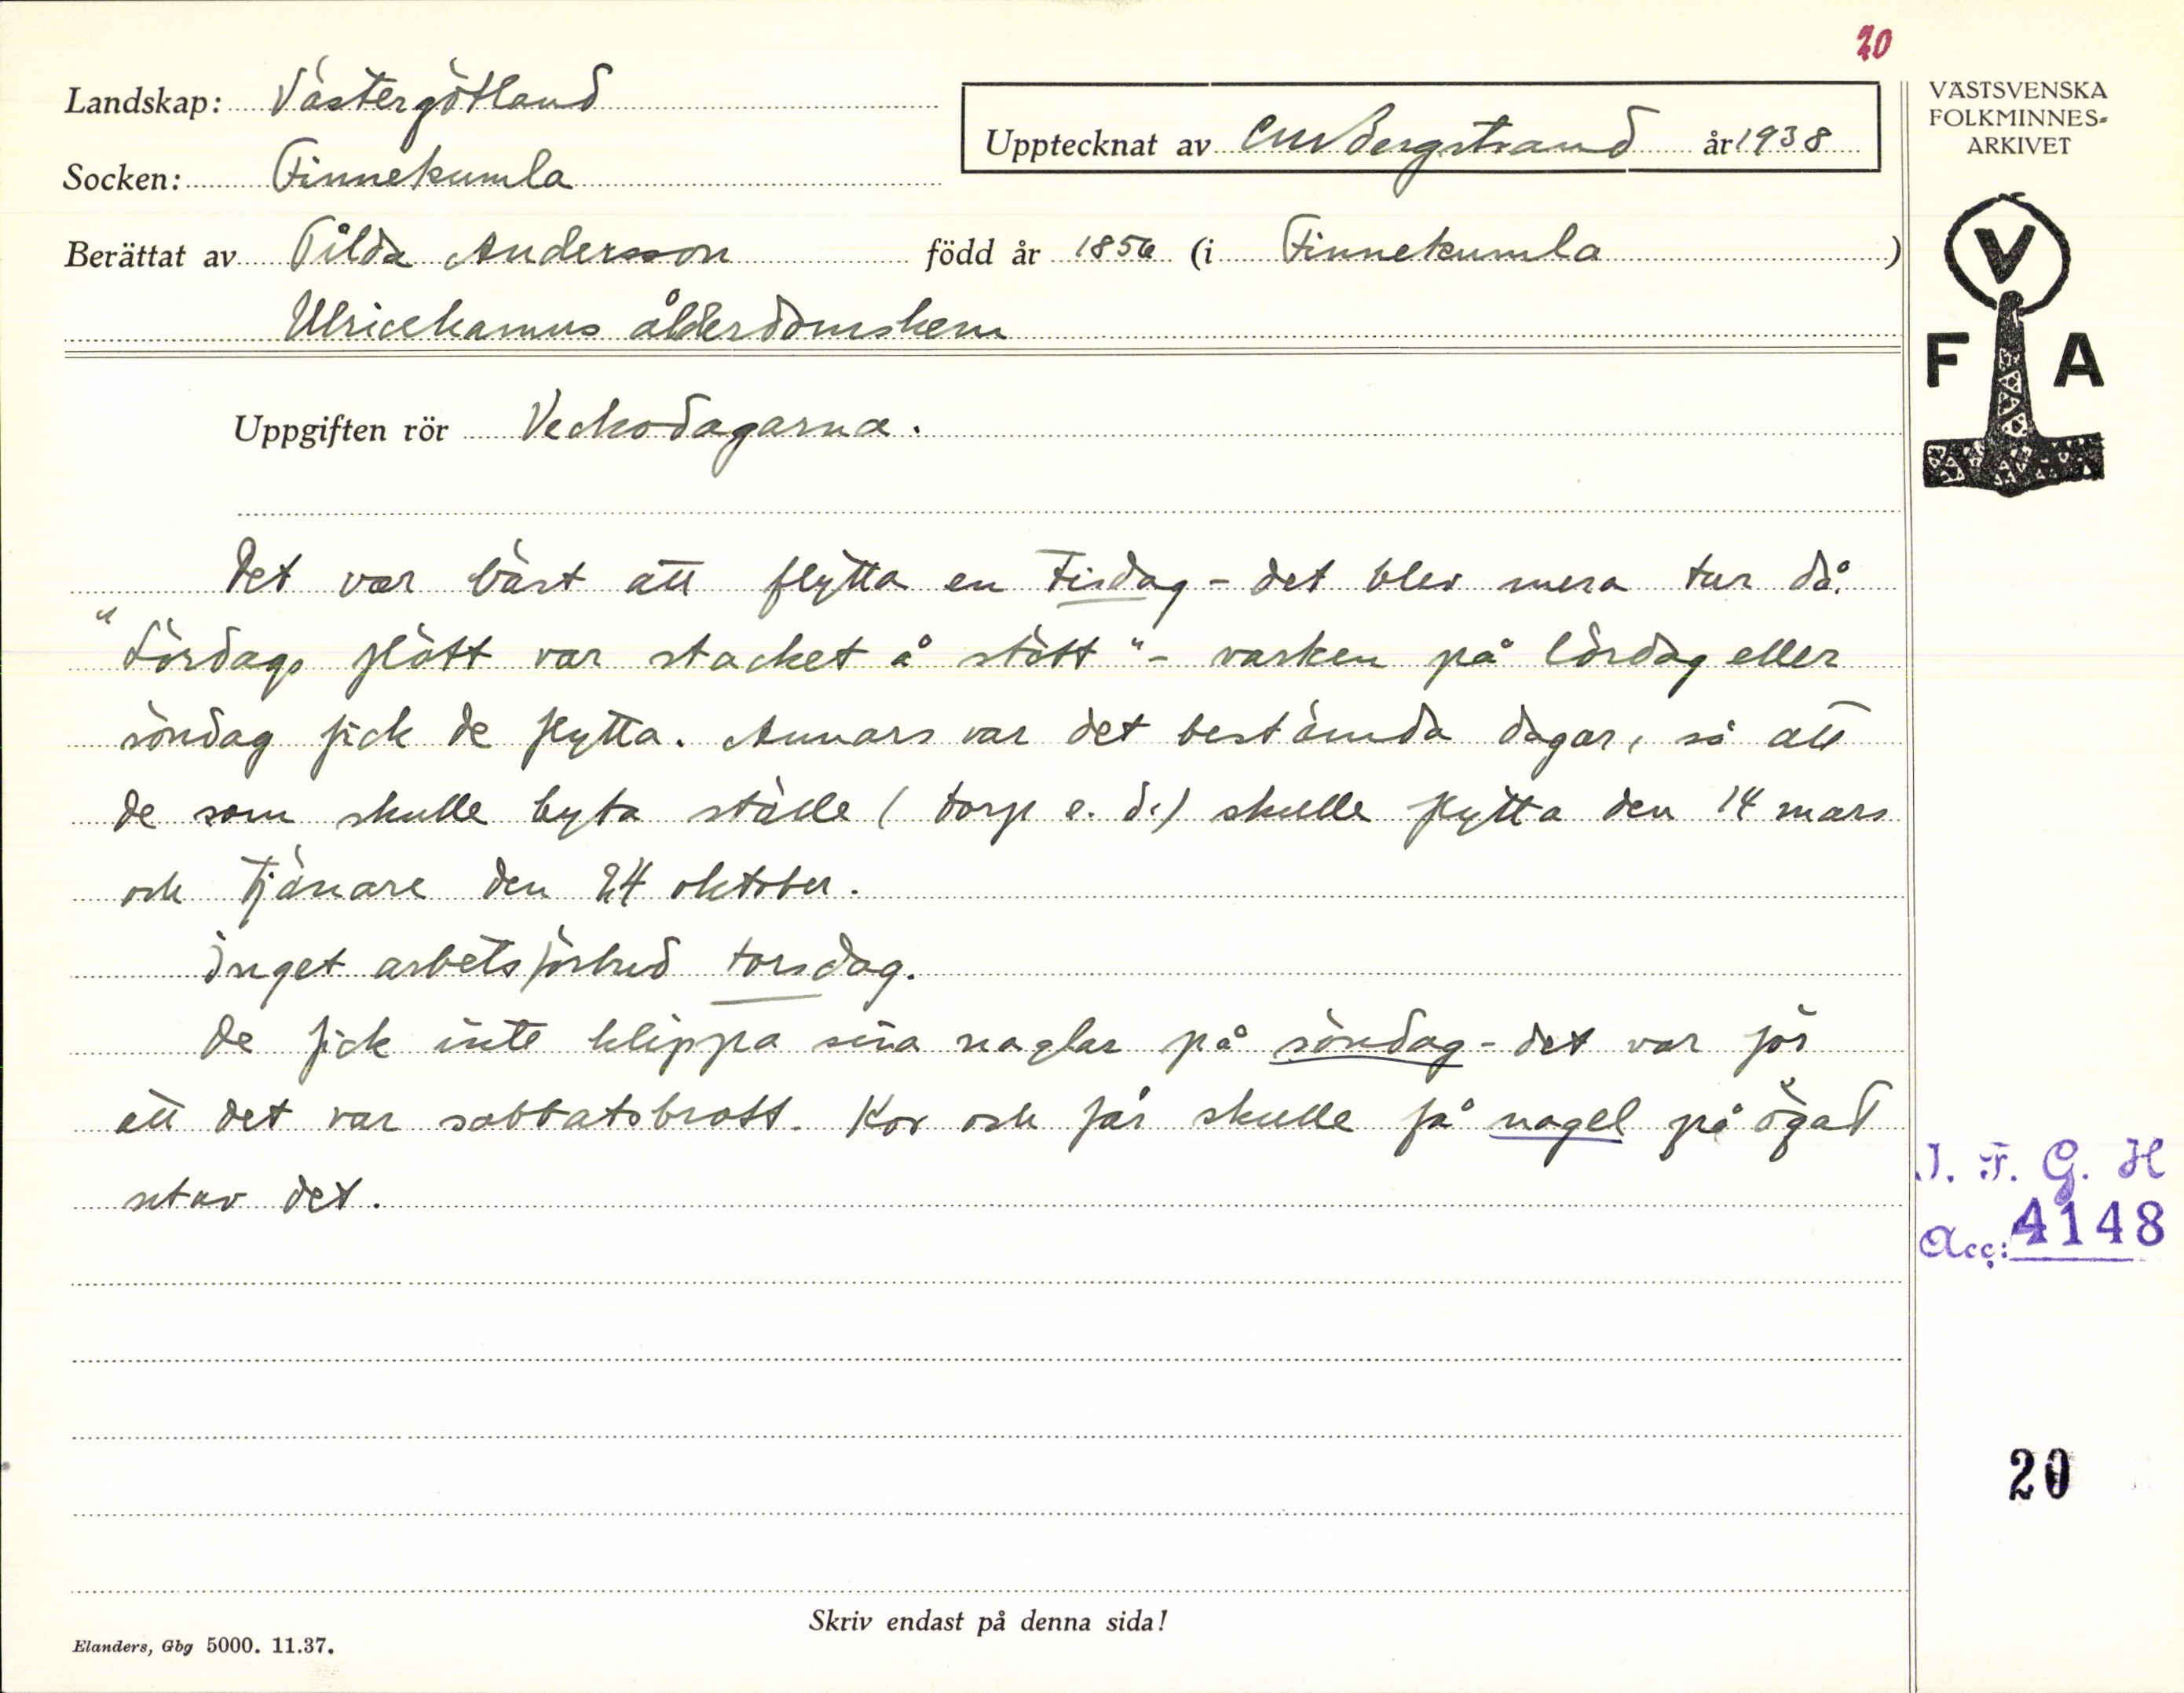 20
Landskap: Västergötland
Upptecknat av C M Bergstrand år 1938
VÄSTSVENSKA
FOLKMINNES-
ARKIVET
Socken: Finnekumla
Berättat av Tilda Andersson född år 1856 (i Finnekumla)
Ulricehamns ålderdomshem
V
F A
Uppgiften rör Veckodagarna.
Det var bäst att flytta en tisdag - det blev mera tur då.
"Lördags flött var stacket å stött" - varken på lördag eller
söndag fick de flytta. Annars var det bestämda dagar, så att
de som skulle byta ställe (torp e. d.) skulle flytta den 14 mars
och tjänare den 24 oktober.
Inget arbetsförbud torsdag.
De fick inte klippa sina naglar på söndag - det var för
att det var sabbatsbrott. Kor och får skulle få nagel på ögat
utav det.
I. F. G. H
Acc: 4148
20
Skriv endast på denna sida!
Elanders, Gbg 5000. 11.37.